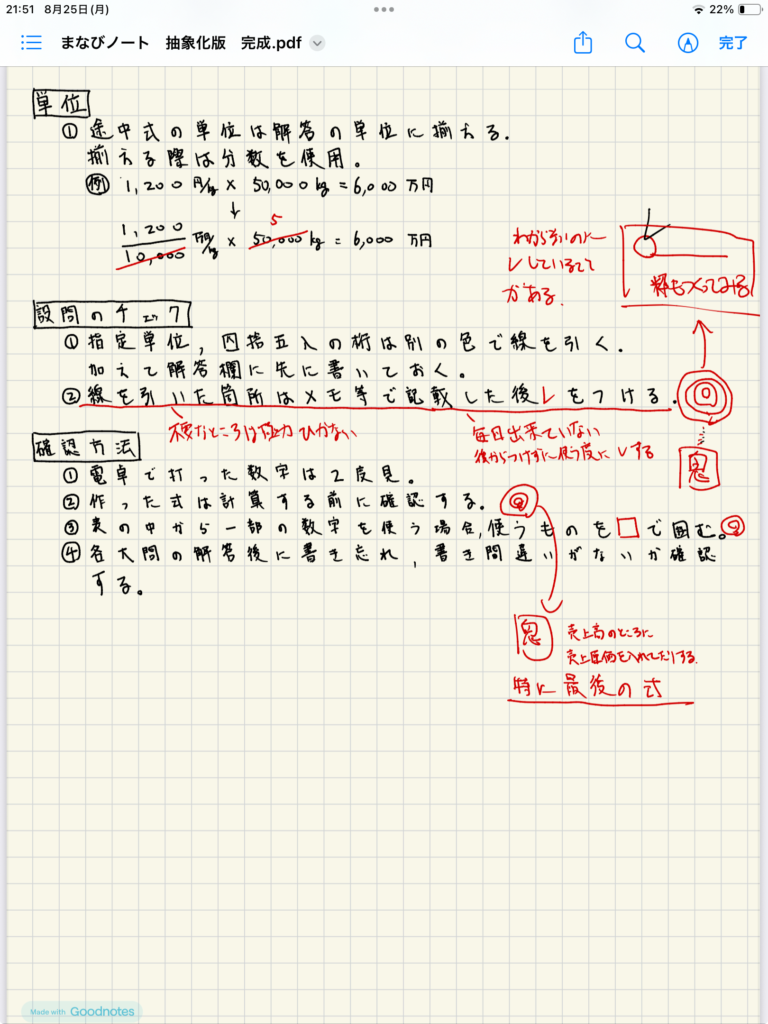 21:51 8月25日(月)
22%
まなびノート 抽象化版 完成.pdf
完了
単位
① 途中式の単位は解答の単位に揃える.
揃える際は分数を使用。
例 1,200 円/kg × 50,000 kg = 6,000 万円
↓
5
1,200
10,000
万円/kg × 50,000 kg = 6,000 万円
わからないのに
レしているとこ
がある.
枠もつくってみる
設問のチェック
① 指定単位, 四捨五入の桁は別の色で線を引く.
加えて解答欄に先に書いておく。
② 線を引いた箇所はメモ等で記載した後レをつける.
不要なところは極力ひかない
毎日出来ていない
後からつけずに使う度にレする
忌
確認方法
① 電卓で打った数字は2度見。
② 作った式は計算する前に確認する。
③ 表の中から一部の数字を使う場合, 使うものを□で囲む。
④ 各大問の解答後に書き忘れ, 書き間違いがないか確認
する。
忌
売上高のところに
売上原価を入れてたりする.
特に最後の式
Made with Goodnotes